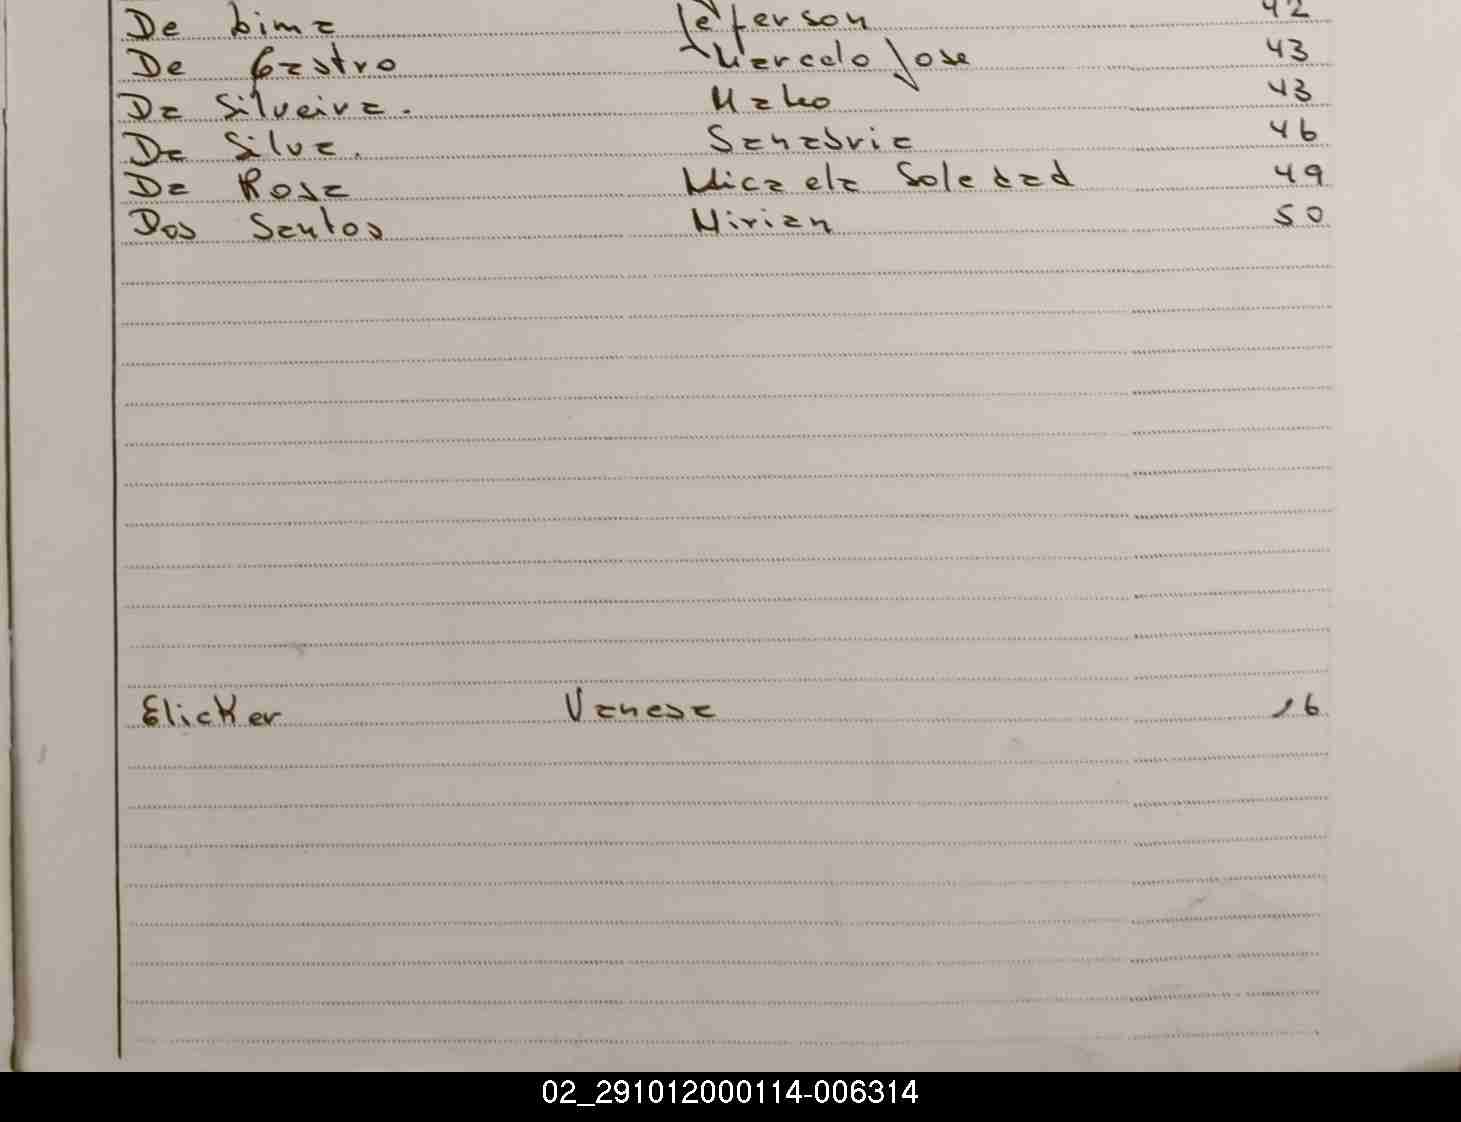 De Lima Jeferson 42
De Castro Marcelo Jose 43
Da Silveira. Maho 43
Da Silva. Sanabria 46
Da Rosa Micaela Soledad 49
Dos Santos Mirian 50
Elicker Vanesa 16
02_291012000114-006314